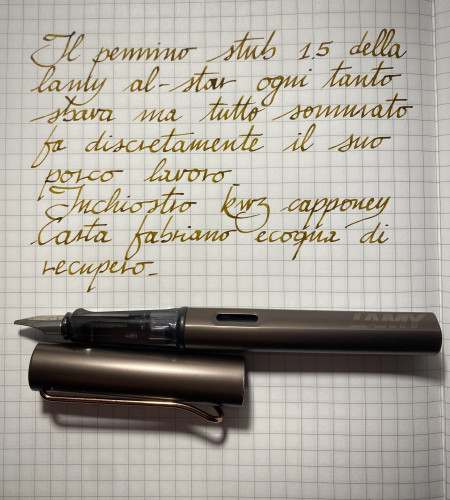 Il pennino stub 1.5 della
lamy al-star ogni tanto
sbava ma tutto sommato
fa discretamente il suo
porco lavoro
Inchiostro kwz capponey
Carta fabriano ecoqua di
recupero_
LAMY